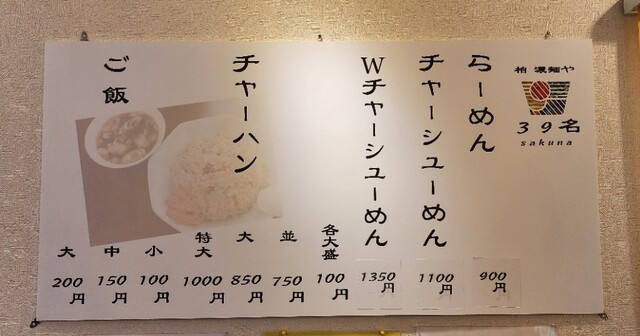 柏 濃麺や
39名
sakuna
らーめん
900円
チャーシューめん
1100円
Wチャーシューめん
1350円
各大盛
100円
チャーハン
並
750円
大
850円
特大
1000円
ご飯
小
100円
中
150円
大
200円